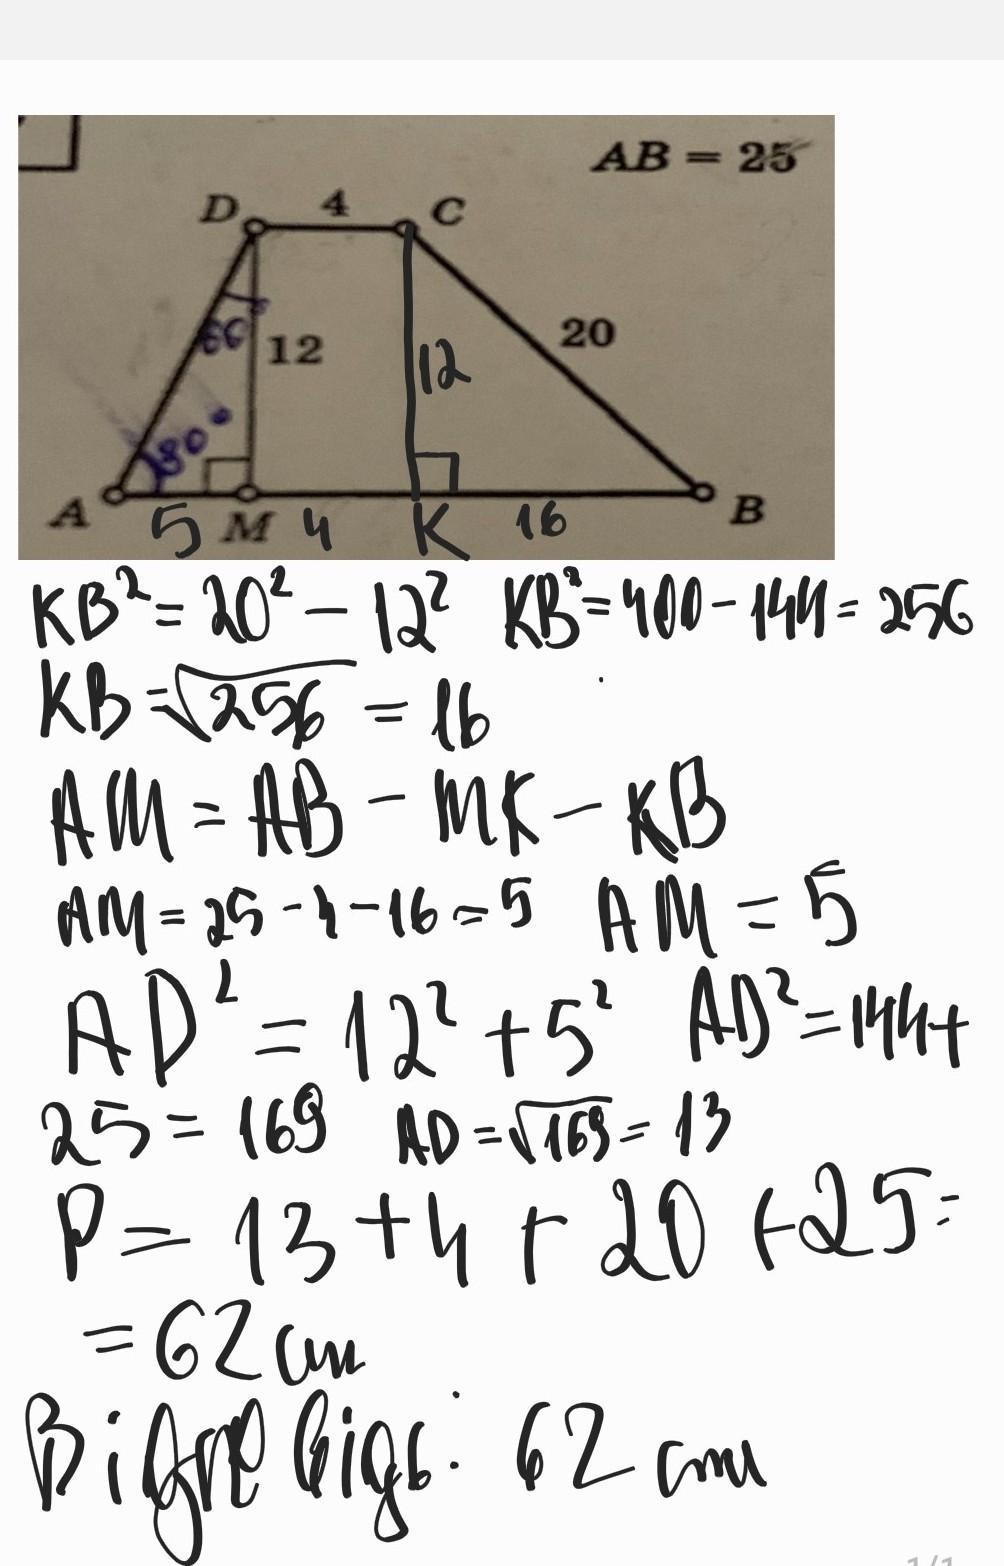 AB = 25
D 4 C
60° 12 12 20
30°
A 5 M 4 K 16 B
KB² = 20² - 12² KB² = 400 - 144 = 256
KB = √256 = 16
AM = AB - MK - KB
AM = 25 - 4 - 16 = 5 AM = 5
AD² = 12² + 5² AD² = 144 +
25 = 169 AD = √169 = 13
P = 13 + 4 + 20 + 25 =
= 62 см
Відповідь: 62 см
1/1